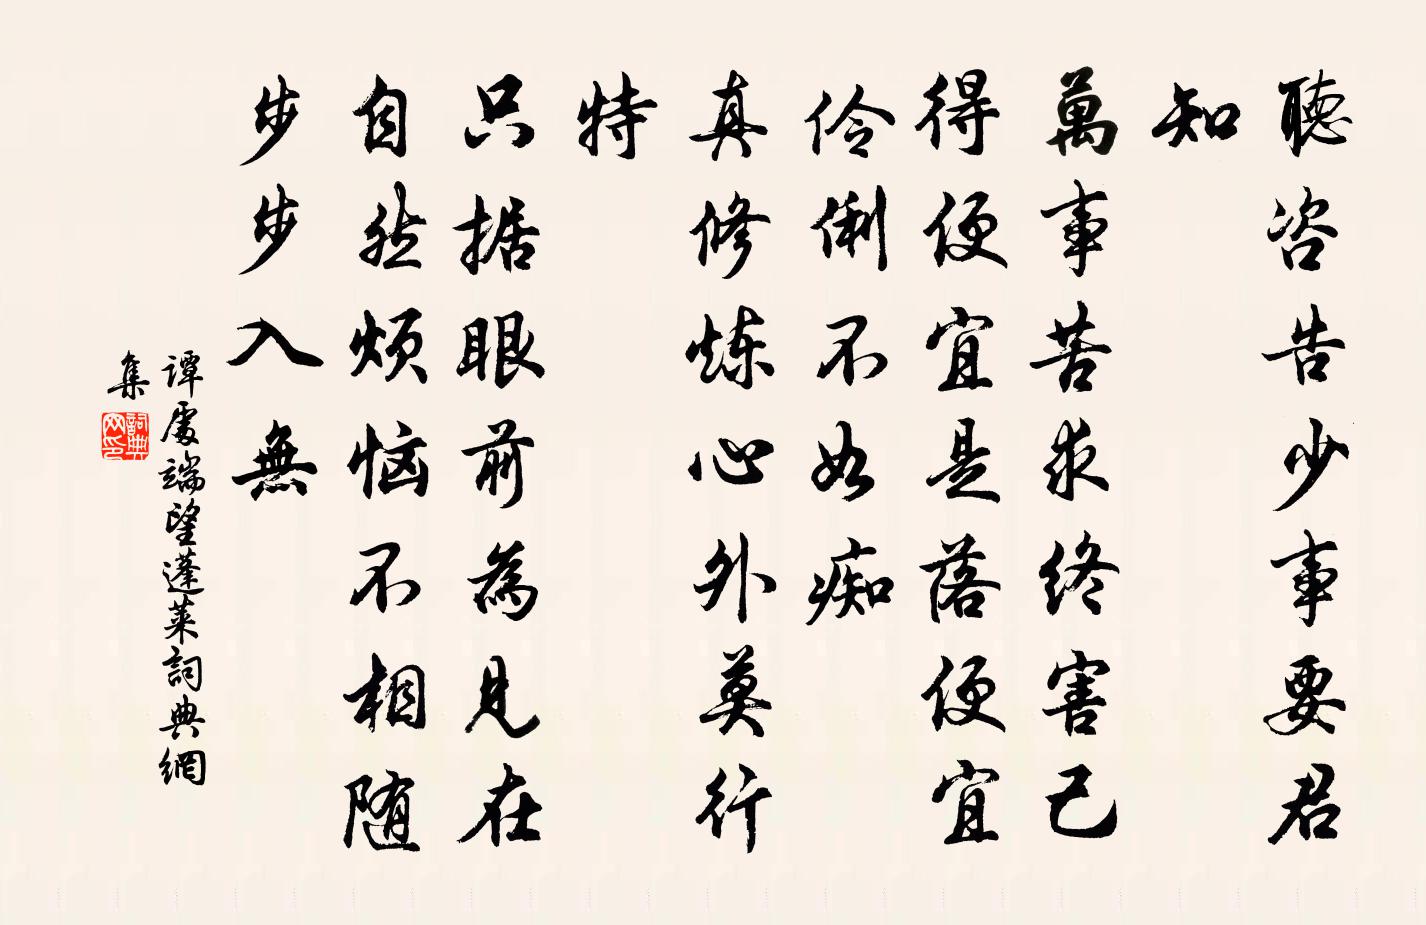 聽咨告少事要君
知
萬事苦求終害己
得便宜是落便宜
伶俐不如痴
真修炼心外莫行
特
只据眼前為見在
自然烦恼不相随
步步入無
谭處端望蓬莱詞典網
集
詞典
网印